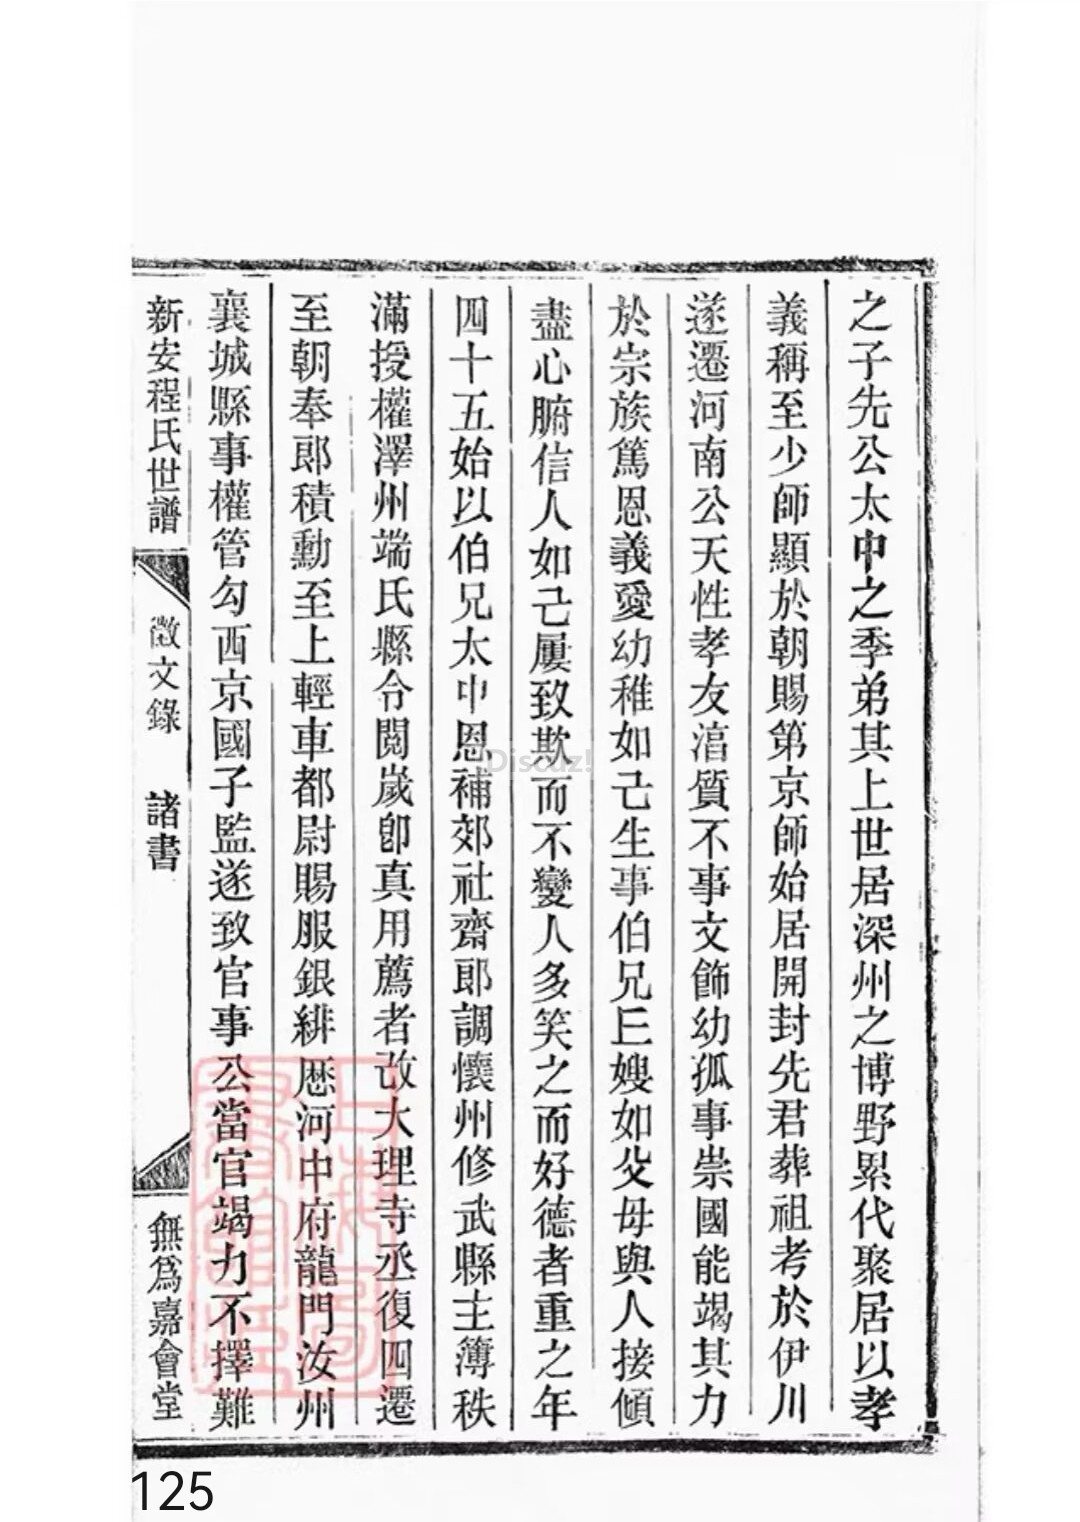 之子先公太中之季弟其上世居深州之博野累代聚居以孝
義稱至少師顯於朝賜第京師始居開封先君葬祖考於伊川
遂遷河南公天性孝友湻質不事文飾幼孤事崇國能竭其力
於宗族篤恩義愛幼稚如己生事伯兄巨嫂如父母與人接傾
盡心腑信人如己屢致欺而不變人多笑之而好德者重之年
四十五始以伯兄太中恩補郊社齋郎調懷州修武縣主簿秩
滿授權澤州端氏縣令閱歲卽真用薦者改大理寺丞復四遷
至朝奉郎積勳至上輕車都尉賜服銀緋歴河中府龍門汝州
襄城縣事權管勾西京國子監遂致官事公當官竭力不擇難
新安程氏世譜
徵文錄
諸書
無爲嘉會堂
Discuz!
125